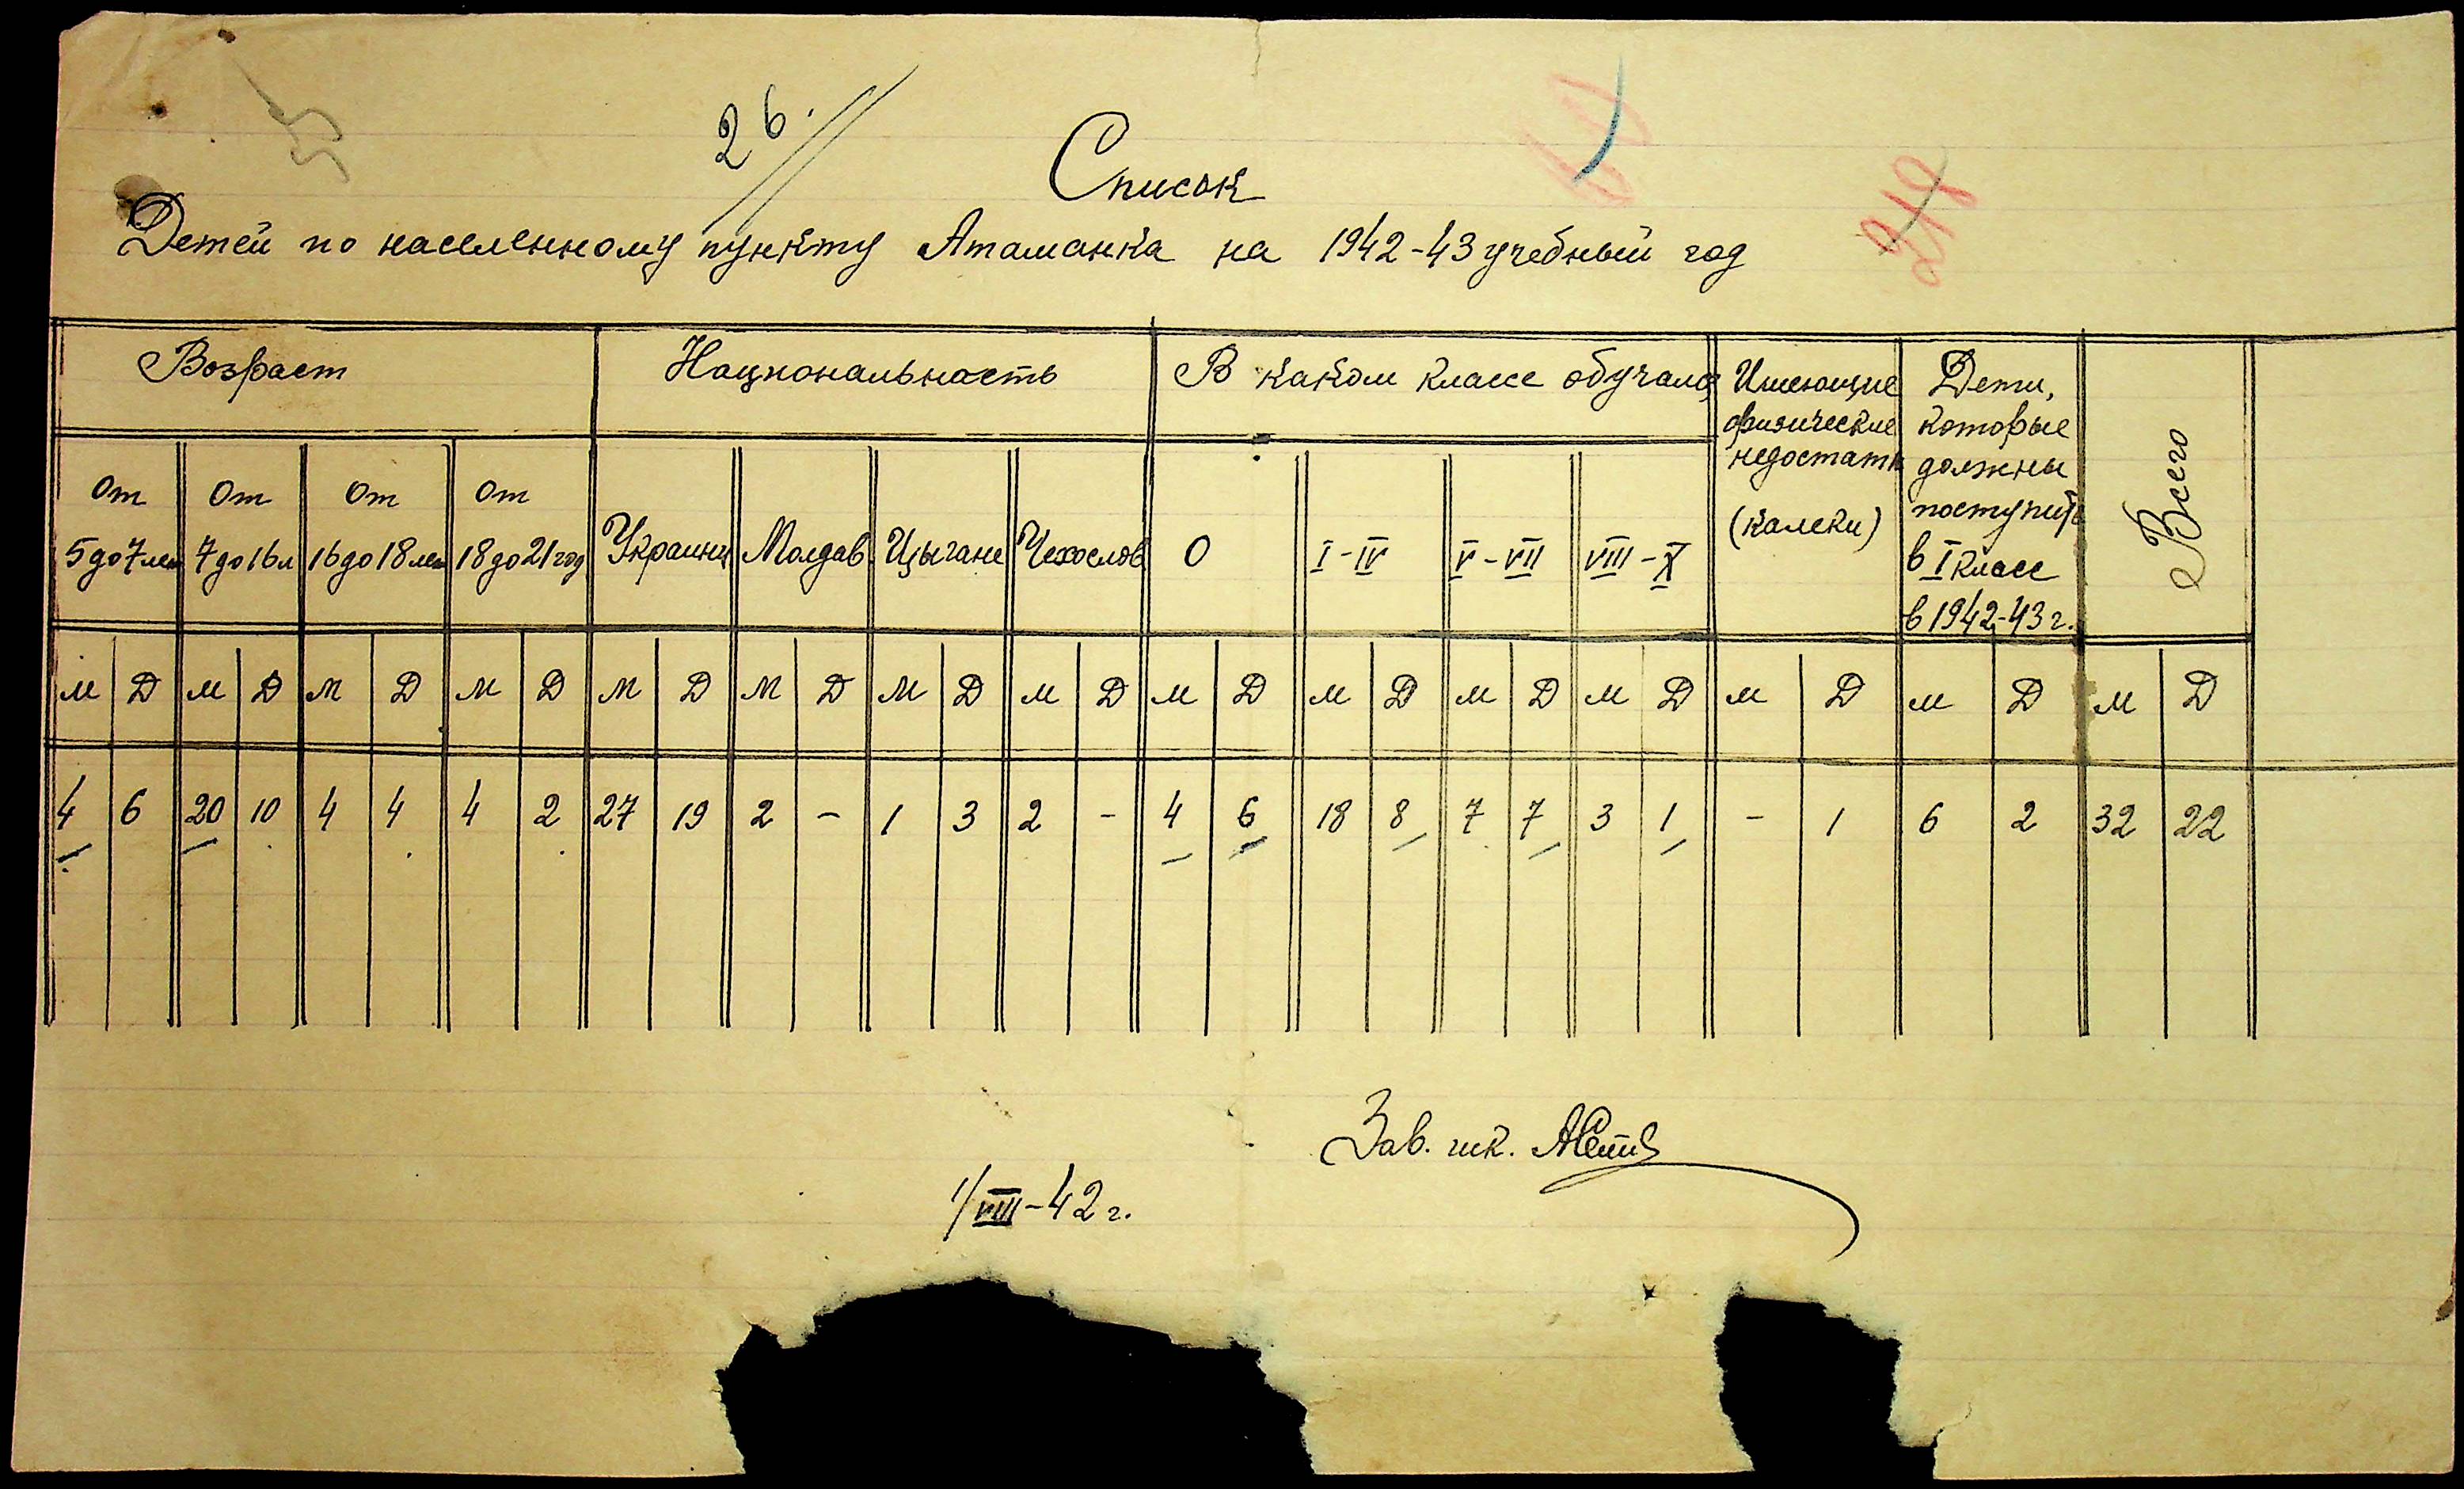 26.
Список
Детей по населенному пункту Атаманка на 1942-43 учебный год
Возраст Национальность В каком классе обучался Имеющие физические недостатк (калеки) Дети, которые должны поступить в I класс в 1942-43 г. Всего
От 5 до 7 лет От 7 до 16 л От 16 до 18 лет От 18 до 21 год Украинц Молдав. Цыгане Чехослов 0 I-IV V-VII VIII-X
м Д м Д м Д м Д м Д м Д м Д м Д м Д м Д м Д м Д м Д м Д м Д
4 6 20 10 4 4 4 2 27 19 2 - 1 3 2 - 4 6 18 8 7 7 3 1 - 1 6 2 32 22
Зав. шк.
1/VIII-42 г.